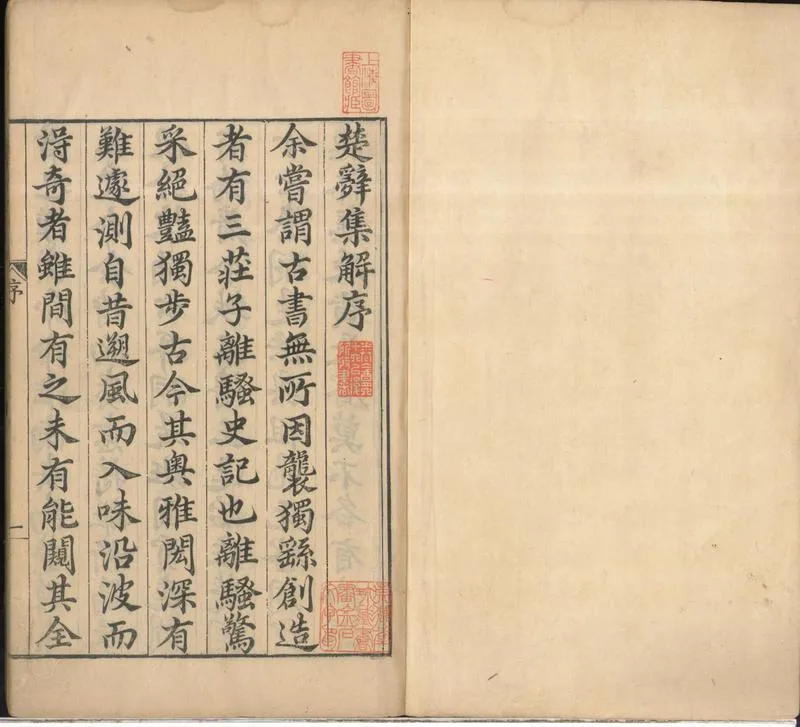 楚辭集解序
余嘗謂古書無所因襲獨繇創造
者有三莊子離騷史記也離騷驚
采絕豔獨步古今其奧雅閎深有
難遽測自昔遡風而入味沿波而
淂奇者雖間有之未有能闚其全
序
一
上海圖書館藏